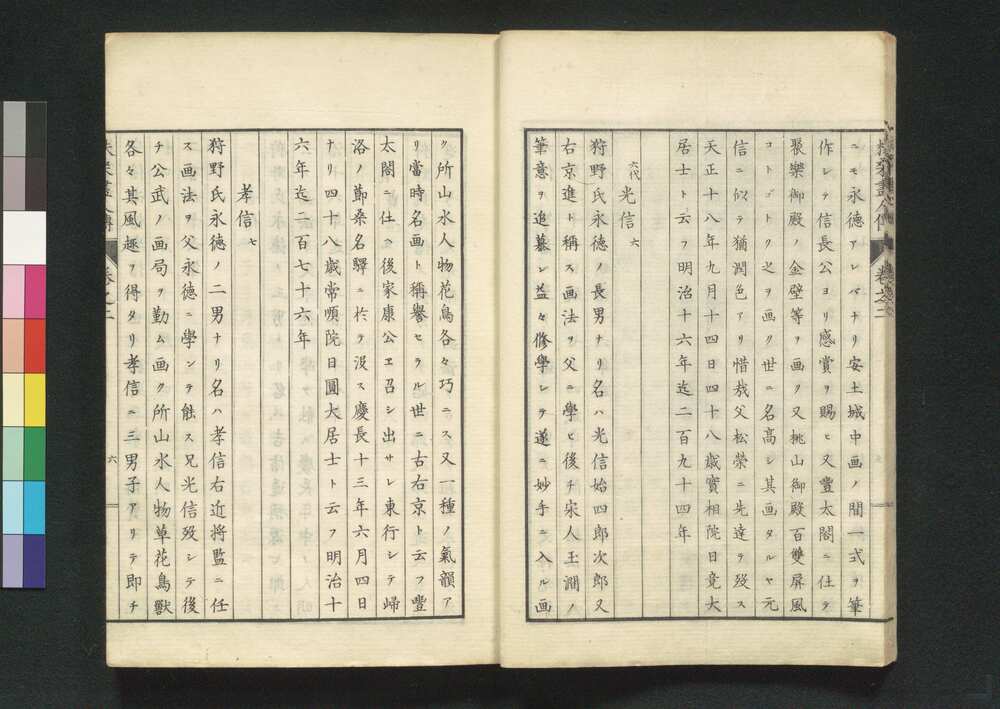 ニモ永徳アレバナリ安土城中画ノ間一式ヲ筆
作シテ信長公ヨリ感賞ヲ賜ヒ又豊太閤ニ仕テ
聚樂御殿ノ金壁等ヲ画ク又桃山御殿百雙屏風
コトゴトク之ヲ画ク世ニ名高シ其画タルヤ元
信ニ似テ猶潤色アリ惜哉父松榮ニ先達テ歿ス
天正十八年九月十四日四十八歳實相院日意大
居士ト云フ明治十六年迄二百九十四年
六代 光信 六
狩野氏永徳ノ長男ナリ名ハ光信始四郎次郎又
右京進ト稱ス画法ヲ父ニ學ヒ後チ宋人玉澗ノ
筆意ヲ追慕シ益々修學シテ遂ニ妙手ニ入ル画
ク所山水人物花鳥各々巧ニス又一種ノ氣韻ア
リ當時名画ト稱譽セラル世ニ古右京ト云フ豊
太閤ニ仕ヘ後家康公ヱ召シ出サレ東行シテ歸
洛ノ節桑名驛ニ於ヲ没ス慶長十三年六月四日
ナリ四十八歳常順院日圓大居士ト云フ明治十
六年迄二百七十六年
孝信 七
狩野氏永徳ノ二男ナリ名ハ孝信右近将監ニ任
ス画法ヲ父永徳ニ學ンテ能ス兄光信歿シテ後
チ公武ノ画局ヲ勤ム画ク所山水人物草花鳥獸
各々其風趣ヲ得タリ孝信ニ三男子アリテ即チ
卷之二
六